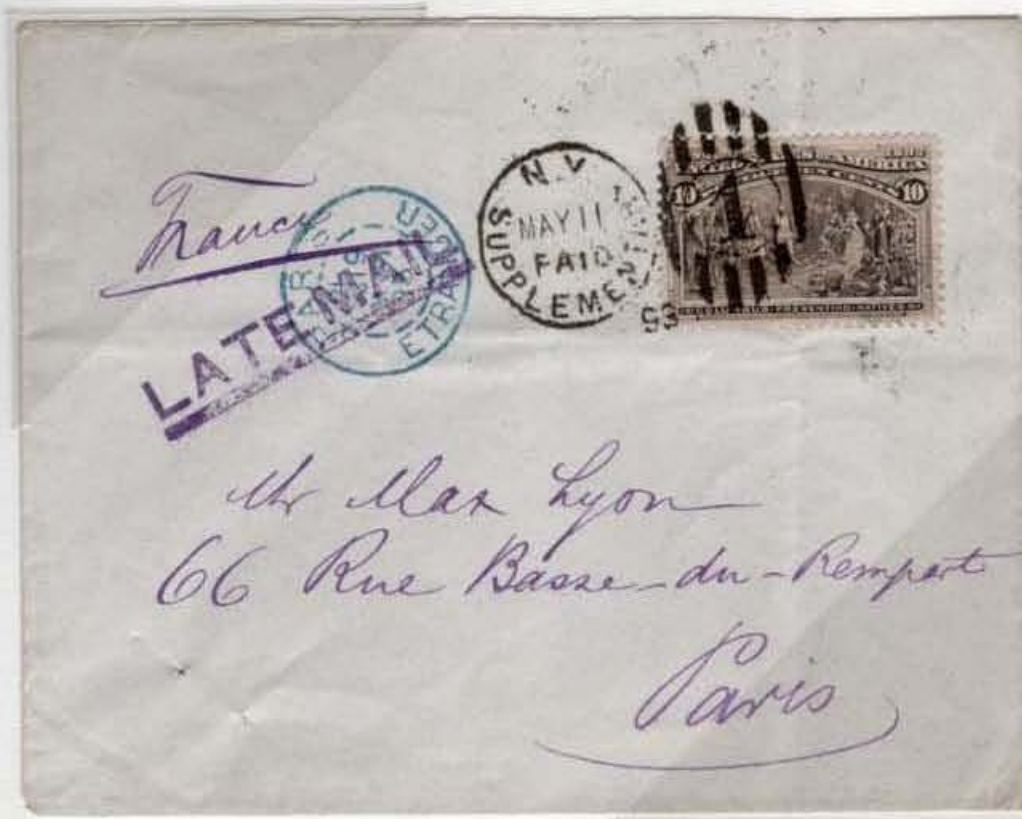 France
LATE MAIL
ETRANGER
N.Y
MAY 11
PAID
SUPPLEMENTARY
93
1
10 10
Mr Max Lyon
66 Rue Basse-du-Rempart
Paris